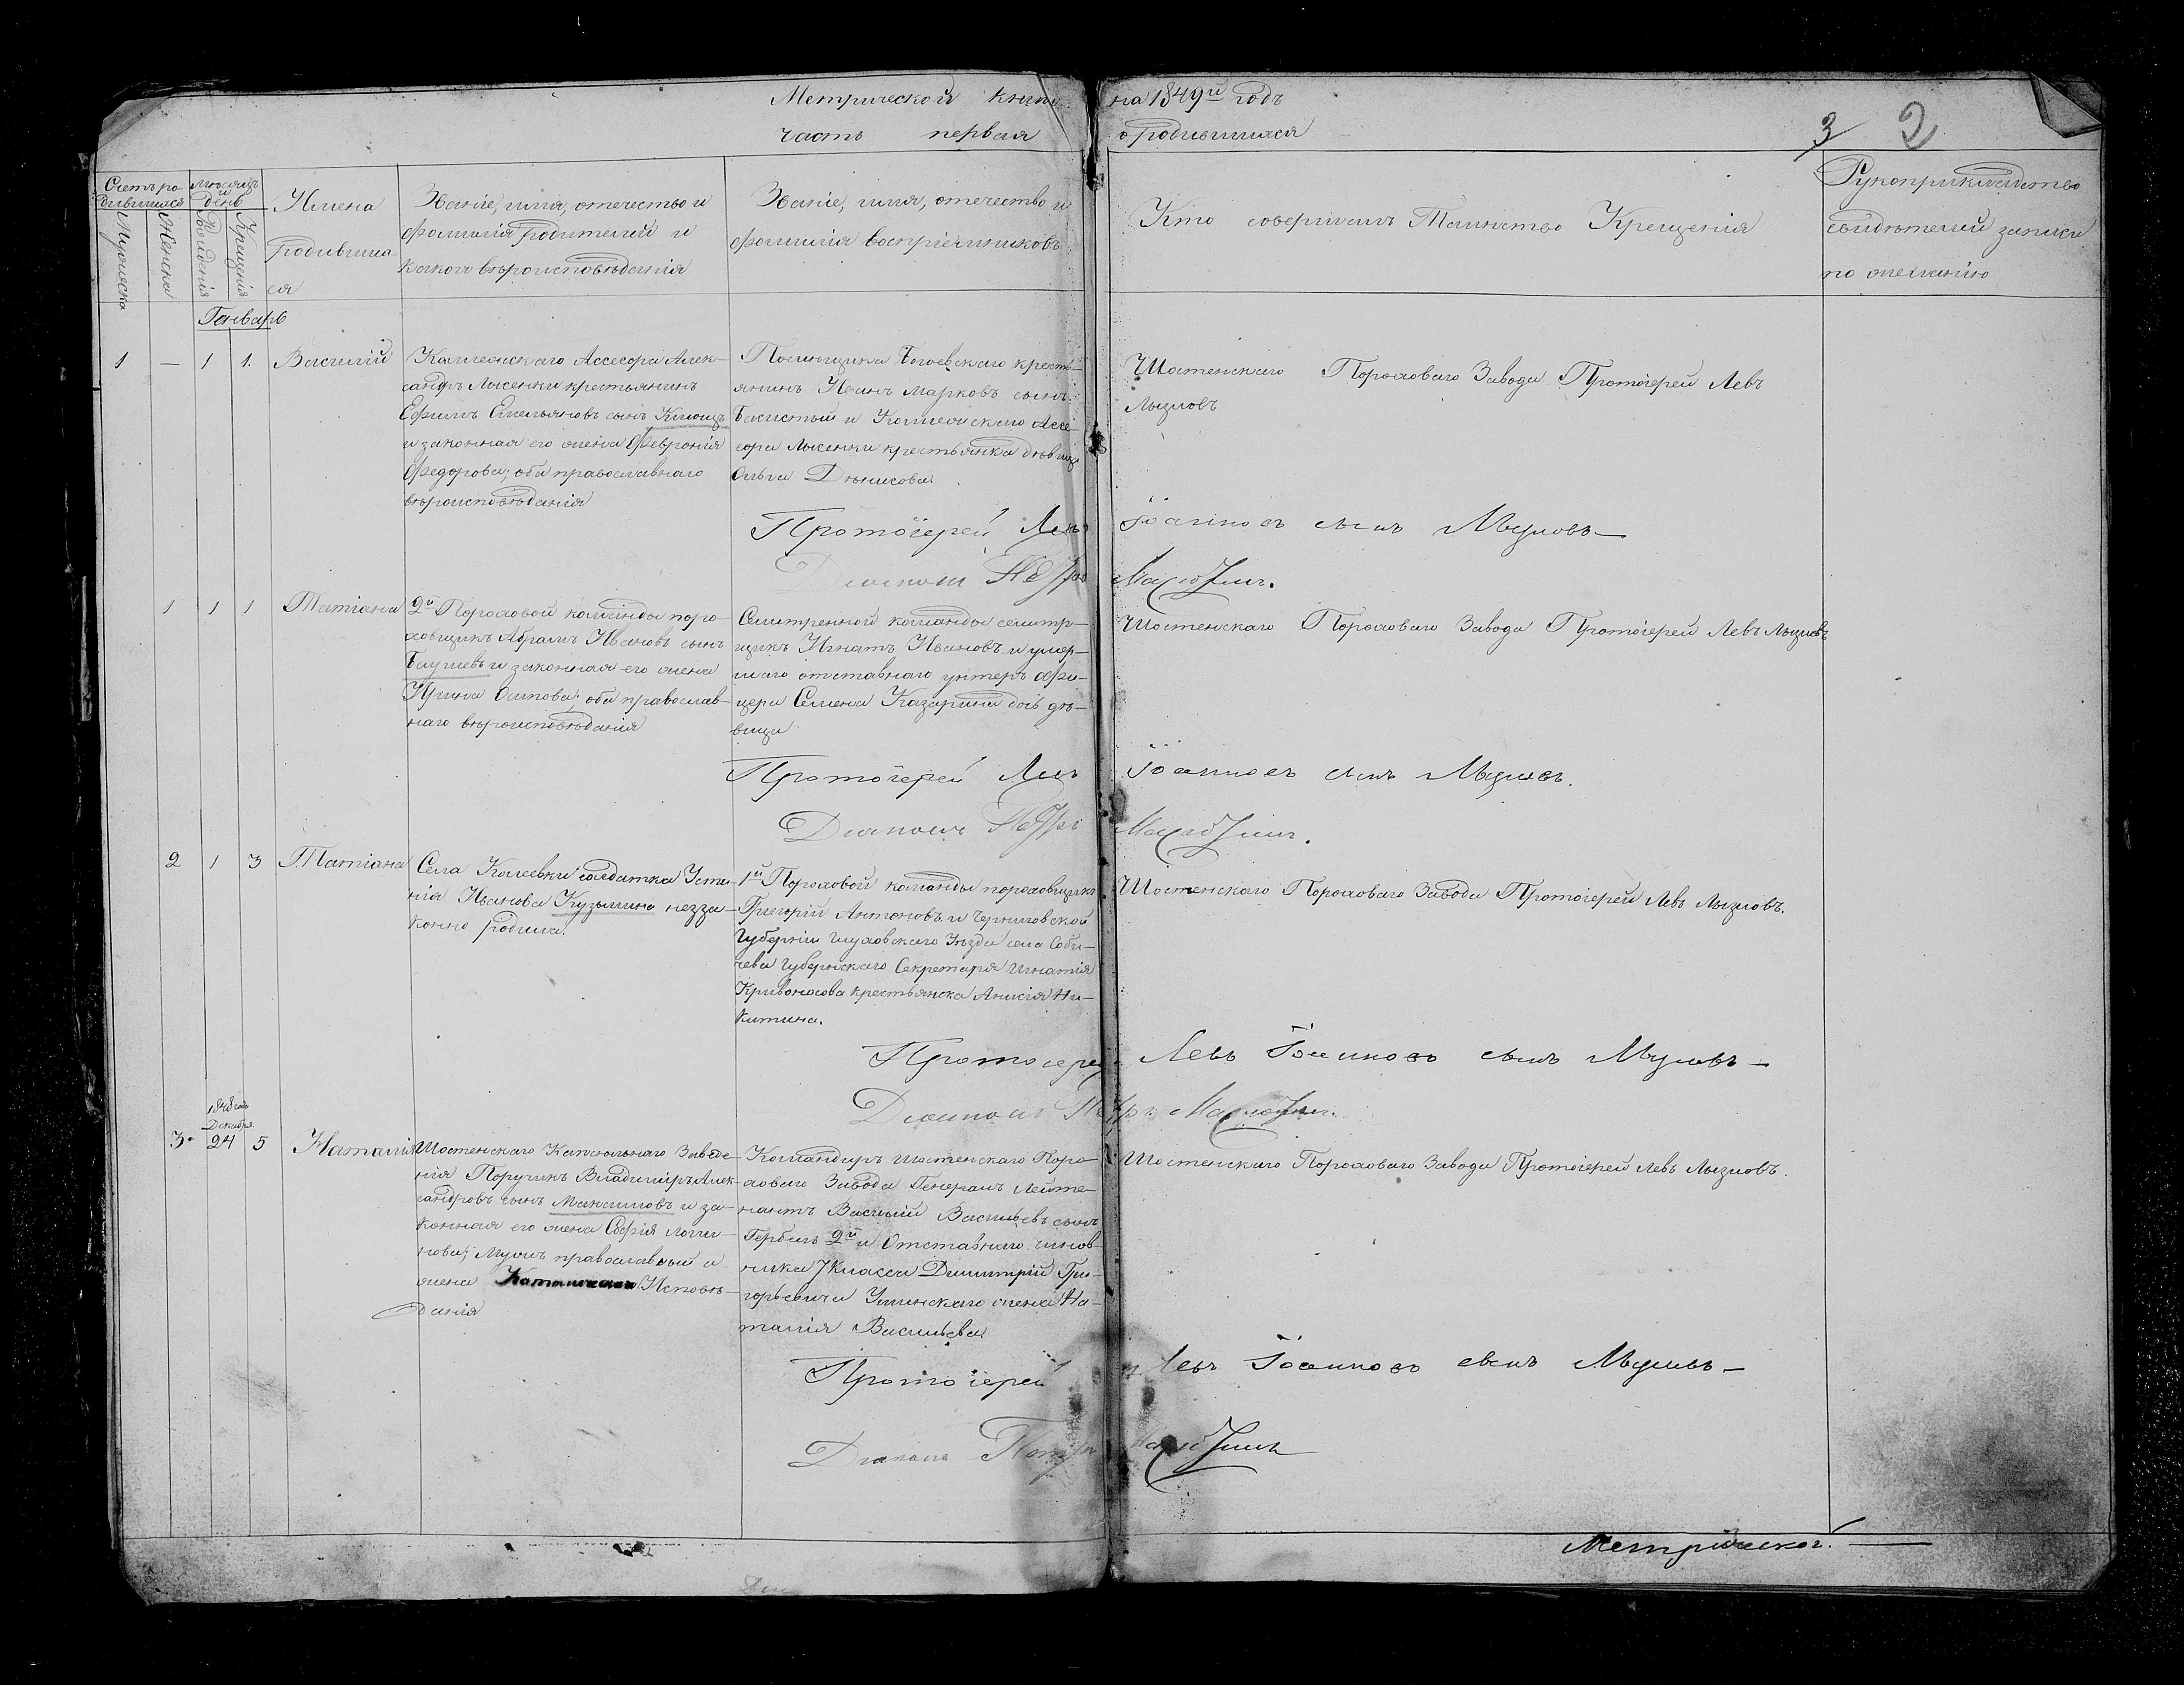 Метрической книги на 1849й годъ
часть первая о родившихся
3 2
Счетъ родившихся
Мужеска
Женска
Мѣсяцъ и день
Рожденія
Крещенія
Имена родившихся
Званіе, имя, отечество и
фамилія родителей и
какого вѣроисповѣданія
Званіе, имя, отечество и
фамилія воспріемниковъ
Кто совершалъ Таинство Крещенія
Рукоприкладство
свидѣтелей записи
по желанію
Генварь
1 — 1 1. Василій
Коллежскаго Ассесора Алек-
сандръ Лисенки крестьянинъ
Ефимъ Емельяновъ сынъ
и законная его жена Февронія
Федорова; оба православнаго
вѣроисповѣданія
Помѣщика крестья-
янинъ Иванъ Марковъ сынъ
и Коллежскаго Ассе
сора Лисенки крестьянка дѣвица
Ольга Денисова.
Шостенскаго Пороховаго Завода Протоіерей Левъ
Лызловъ
Протоіерей Левъ Іоанновъ сынъ Лызловъ
Діаконъ Петръ
1 1 1 Татіана
2й Пороховой команды поро-
ховщикъ Абрамъ Ивановъ сынъ
и законная его жена
Ирина Осипова; оба православ-
наго вѣроисповѣданія
Селитренной команды селитр-
щикъ Игнатъ Ивановъ и умер-
шаго отставнаго унтеръ офи-
цера Семена Казарина дочь дѣ-
вица
Шостенскаго Пороховаго Завода Протоіерей Левъ Лызловъ
Протоіерей Левъ Іоанновъ сынъ Лызловъ.
Діаконъ Петръ
2 1 3 Татіана
Села солдатка Усти-
нія Иванова Кузьмина незза-
конно родила.
1й Пороховой команды пороховщикъ
Григорій Антоновъ и Черниговской
Губерніи Глуховскаго Уѣзда села Соби-
чева Губернскаго Секретаря Игнатія
Кривоносова крестьянка Анисія Ни-
китина.
Шостенскаго Пороховаго Завода Протоіерей Левъ Лызловъ.
Протоіерей Левъ Іоанновъ сынъ Лызловъ
Діаконъ Петръ
1848 года
Декабря
3. 24 5 Наталія
Шостенскаго Капсюльнаго Заведе-
нія Поручикъ Владиміръ Алек-
сандровъ сынъ Максимовъ и за-
конная его жена Софія Логги-
нова; Мужъ православный а
жена Католическаго Исповѣ-
данія
Командиръ Шостенскаго Поро-
ховаго Завода Генералъ Лейте-
нантъ Василій Васильевъ сынъ
Гербель 2й и Отставнаго чинов-
ника 7 класса Димитрій Гри-
горьевича жена На-
талія Васильева
Шостенскаго Пороховаго Завода Протоіерей Левъ Лызловъ.
Протоіерей Левъ Іоанновъ сынъ Лызловъ
Діаконъ Петръ
Метрической.